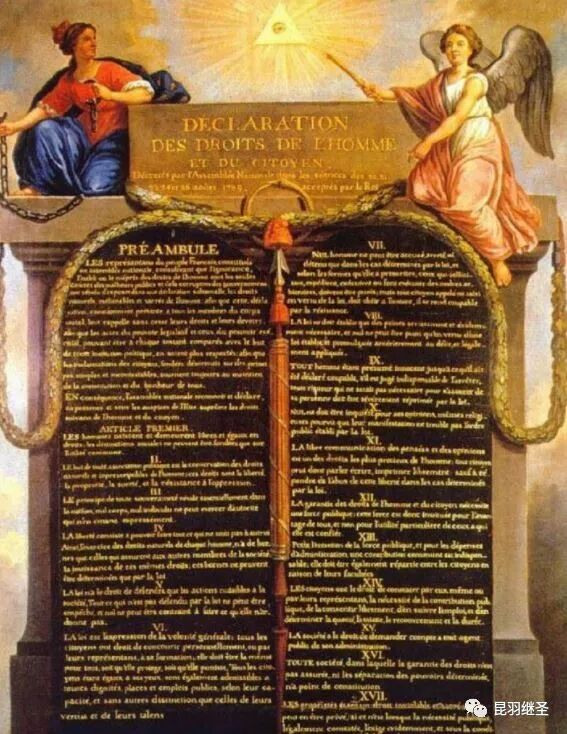 DÉCLARATION
DES DROITS DE L'HOMME
ET DU CITOYEN,
Décrétés par l'Assemblée Nationale dans les séances des 20, 21
23, 24 et 26 août 1789, acceptés par le Roi
PRÉAMBULE
LES représentans du peuple François, constitués
en assemblée nationale, considérant que l'ignorance,
l'oubli ou le mépris des droits de l'homme sont les seules
causes des malheurs publics et de la corruption des gouvernemens
ont résolu d'exposer dans une déclaration solemnelle, les droits
naturels, inaliénables et sacrés de l'homme: afin que cette décla-
ration, constamment présente à tous les membres du corps
social, leur rappelle sans cesse leurs droits et leurs devoirs,
afin que les actes du pouvoir législatif et ceux du pouvoir exé-
cutif, pouvant être à chaque instant comparés avec le but
de toute institution politique, en soient plus respectés; afin que
les réclamations des citoyens, fondées désormais sur des princi-
pes simples et incontestables, tournent toujours au maintien
de la constitution et du bonheur de tous.
EN conséquence, l'assemblée nationale reconnoit et déclare,
en présence et sous les auspices de l'Être suprême les droits
suivans de l'homme et du citoyen.
ARTICLE PREMIER.
LES hommes naissent et demeurent libres et égaux en
droits; les distinctions sociales ne peuvent être fondées que sur
l'utilité commune.
II.
LE but de toute association politique est la conservation des droits
naturels et imprescriptibles de l'homme; ces droits sont la liberté,
la propriété, la sureté, et la résistance à l'oppression.
III.
LE principe de toute souveraineté réside essentiellement dans
la nation, nul corps, nul individu ne peut exercer d'autorité
qui n'en émane expressément.
IV.
LA liberté consiste à pouvoir faire tout ce qui ne nuit pas à autrui
Ainsi, l'exercice des droits naturels de chaque homme, n'a de bor-
nes que celles qui assurent aux autres membres de la société
la jouissance de ces mêmes droits; ces bornes ne peuvent
être déterminées que par la loi
V.
LA loi n'a le droit de défendre que les actions nuisibles à la
société. Tout ce qui n'est pas défendu par la loi ne peut être
empêché, et nul ne peut être contraint à faire ce qu'elle n'or-
donne pas.
VI.
LA loi est l'expression de la volonté générale; tous les
citoyens ont droit de concourir personnellement, ou par
leurs représentans, à sa formation; elle doit être la même
pour tous, soit qu'elle protege, soit qu'elle punisse. Tous les cito-
yens étant égaux à ses yeux, sont également admissibles à
toutes dignités, places et emplois publics, selon leur capa-
cité, et sans autres distinction que celles de leurs
vertus et de leurs talens
VII.
NUL homme ne peut être accusé, arrêté, ni
détenu que dans les cas déterminés par la loi, et
selon les formes qu'elle a prescrites, ceux qui sollici-
tent, expédient, exécutent ou font exécuter des ordres ar-
bitraires, doivent être punis; mais tout citoyen appelé ou saisi
en vertu de la loi, doit obéir à l'instant, il se rend coupable
par la résistance.
VIII.
LA loi ne doit établir que des peines strictement et évidem-
ment nécessaires, et nul ne peut être puni qu'en vertu d'une
loi établie et promulguée antérieurement au délit, et légale-
ment appliquée.
IX.
TOUT homme étant présumé innocent jusqu'à ce qu'il ait
été déclaré coupable, s'il est jugé indispensable de l'arrêter,
toute rigueur qui ne seroit pas nécessaire pour s'assurer de
sa personne doit être sévérement réprimée par la loi.
X.
NUL ne doit être inquiété pour ses opinions, mêmes religi-
euses pourvu que leur manifestation ne trouble pas l'ordre
public établi par la loi.
XI.
LA libre communication des pensées et des opinions
est un des droits les plus precieux de l'homme; tout citoyen
peut donc parler écrire, imprimer librement: sauf à ré-
pondre de l'abus de cette liberté dans les cas déterminés
par la loi.
XII.
LA garantie des droits de l'homme et du citoyen nécessite
une force publique; cette force est donc instituée pour l'avan-
tage de tous, et non pour l'utilité particuliere de ceux à qui
elle est confiée.
XIII.
POUR l'entretien de la force publique, et pour les dépenses
d'administration, une contribution commune est indispen-
sable; elle doit être également répartie entre les citoyens en
raison de leurs facultées
XIV.
LES citoyens ont le droit de constater par eux même ou
par leurs représentans, la nécessité de la contribution pub-
lique, de la consentir librement, d'en suivre l'emploi, et d'en
déterminer la quotité, l'assiette, le recouvrement et la durée.
XV.
LA société a le droit de demander compte à tout agent
public de son administration.
XVI.
TOUTE société, dans laquelle la garantie des droits n'est
pas assurée, ni la séparation des pouvoirs déterminée,
n'a point de constitution.
XVII.
LES propriétés étant un droit inviolable et sacré, nul ne
peut en être privé, si ce n'est lorsque la nécessité publique,
légalement constatée, l'exige évidemment, et sous la
昆羽继圣